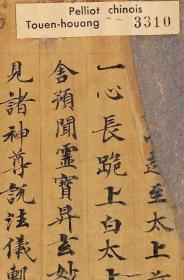 Pelliot chinois
Touen-houang 3310
至太上
一心長跪上白太上
舍預聞靈寶昇玄妙
見諸神尊說法儀